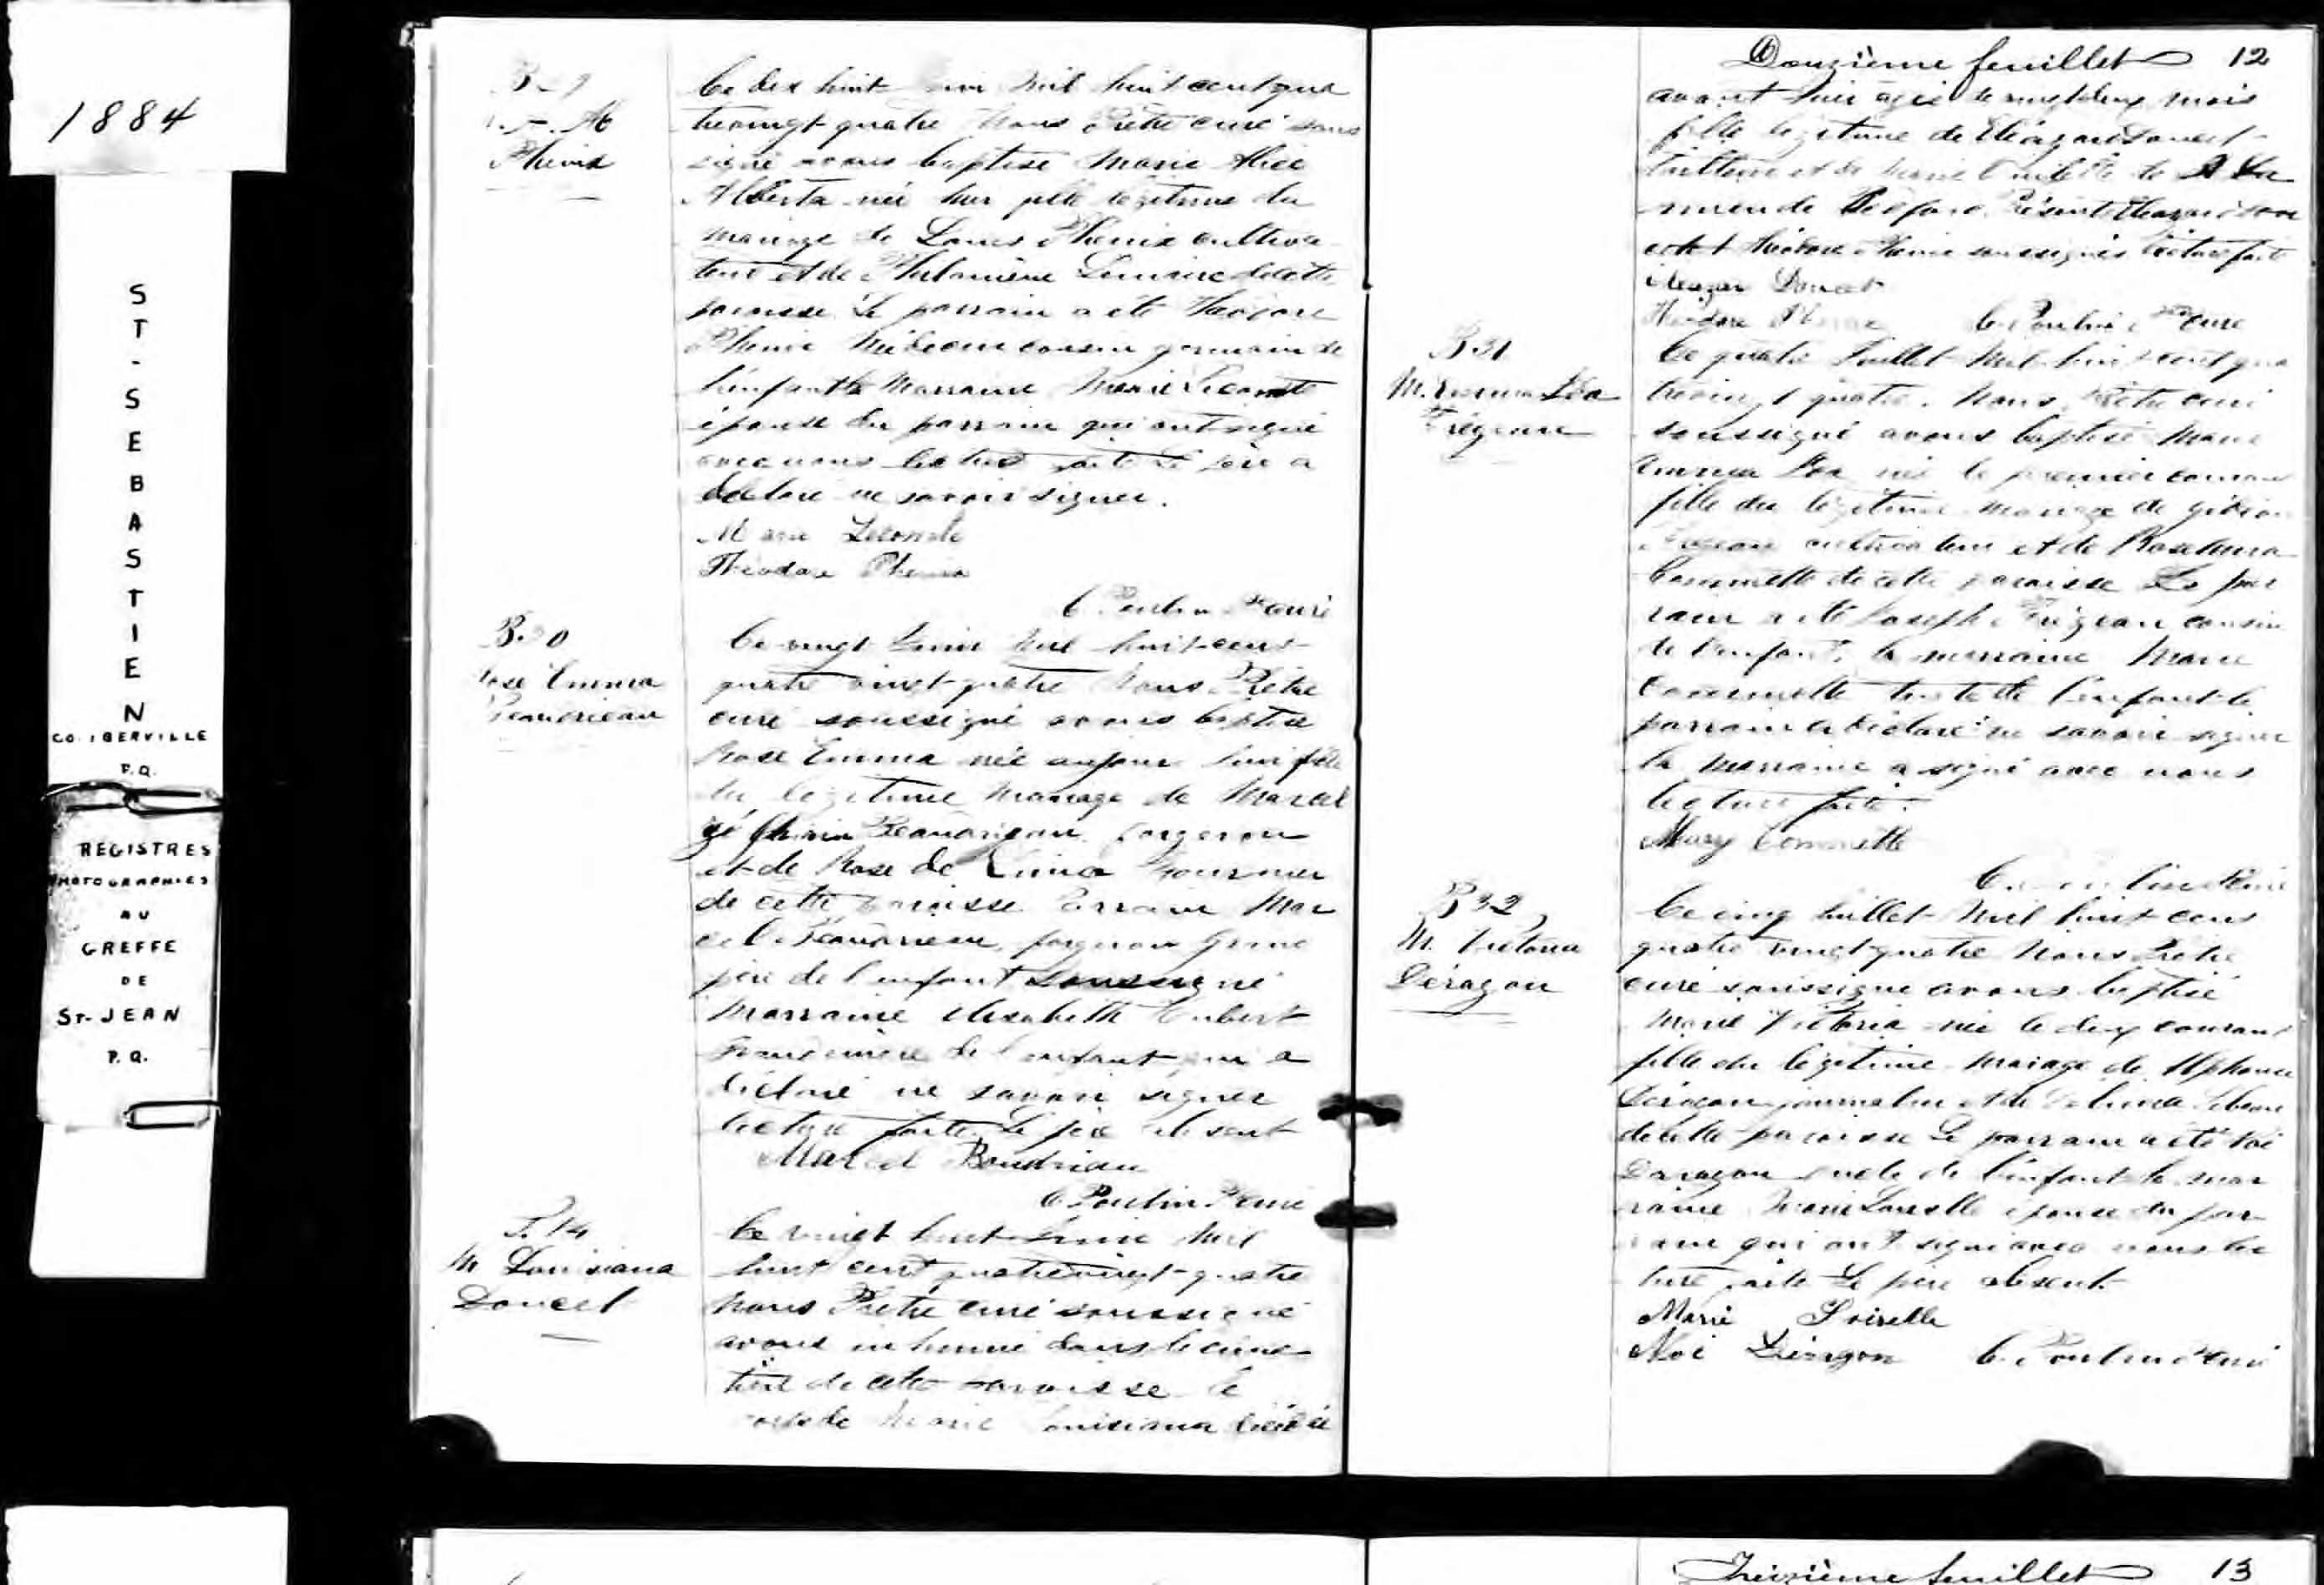 1884
ST-SEBASTIEN
CO. IBERVILLE
P.Q.
REGISTRES
PHOTOGRAPHIES
AU
GREFFE
DE
ST-JEAN
P.Q.
Phenix
Ce dix huit Juin Mil huit cent qua
trevingt quatre Nous Prêtre curé sous
signé avons baptisé Marie Alice
Alberta née hier fille légitime du
mariage de Louis Phenix cultiva
teur et de Lemaire de cette
paroisse Le parrain a été Théodore
Phenix Médecin cousin germain de
l'enfant la Marraine Marie Lecomte
épouse du parrain qui ont signé
avec nous lecture faite Le père a
déclaré ne savoir signer.
Marie Lecomte
Théodore Phenix
C. Poulin Ptre curé
B.30
Rose Emma
Beaudrieau
Ce vingt Juin Mil huit cent
quatre vingt quatre Nous Prêtre
curé soussigné avons baptisé
Rose Emma née aujourd'hui fille
du légitime mariage de Marcel
Beaudrieau forgeron
et de Rose de Lima Fournier
de cette paroisse Parrain Mar
cel Beaudrieau, forgeron Grand
père de l'enfant soussigné
Marraine Elisabeth Hubert
Grand'mère de l'enfant qui a
déclaré ne savoir signer
lecture faite. Le père absent
Marcel Boudriau
C. Poulin Ptre curé
S.14
M. Louisiana
Doucet
Ce vingt huit Juin Mil
huit cent quatrevingt-quatre
Nous Prêtre curé soussigné
avons inhumé dans le cime
tière de cette paroisse le
corps de Marie Louisiana décédée
Douzième feuillet 12
avant hier agée de vingt deux mois
fille légitime de Eléazare Doucet
et de Marie
Présents Eléazare Dou
cet et Théodore Phenix soussignés lecture faite
Eleazar Doucet
Théodore Phenix C. Poulin Ptre curé
B.31
M. Emma Léa
Trégeau
Ce quatre Juillet Mil huit cent qua
trevingt quatre. Nous, Prêtre curé
soussigné avons baptisé Marie
Emma Léa née le premier courant
fille du légitime mariage de Gédéon
cultivateur et de
de cette paroisse Le par
rain a été Joseph cousin
de l'enfant, la marraine Marie
tante de l'enfant le
parrain a déclaré ne savoir signer
la marraine a signé avec nous
lecture faite.
Mary
C. Poulin Ptre curé
B32
M. Victoria
Déragon
Ce cinq Juillet Mil huit cent
quatre vingt quatre Nous Prêtre
curé soussigné avons baptisé
Marie Victoria née le deux courant
fille du légitime mariage de Alphonse
Déragon journalier et de
de cette paroisse Le parrain a été Noé
Daragon oncle de l'enfant la mar
raine Marie Loiselle épouse du par
rain qui ont signé avec nous lec
ture faite Le père absent.
Marie Loiselle
Noé Déragon C. Poulin Ptre curé
Treizième feuillet 13